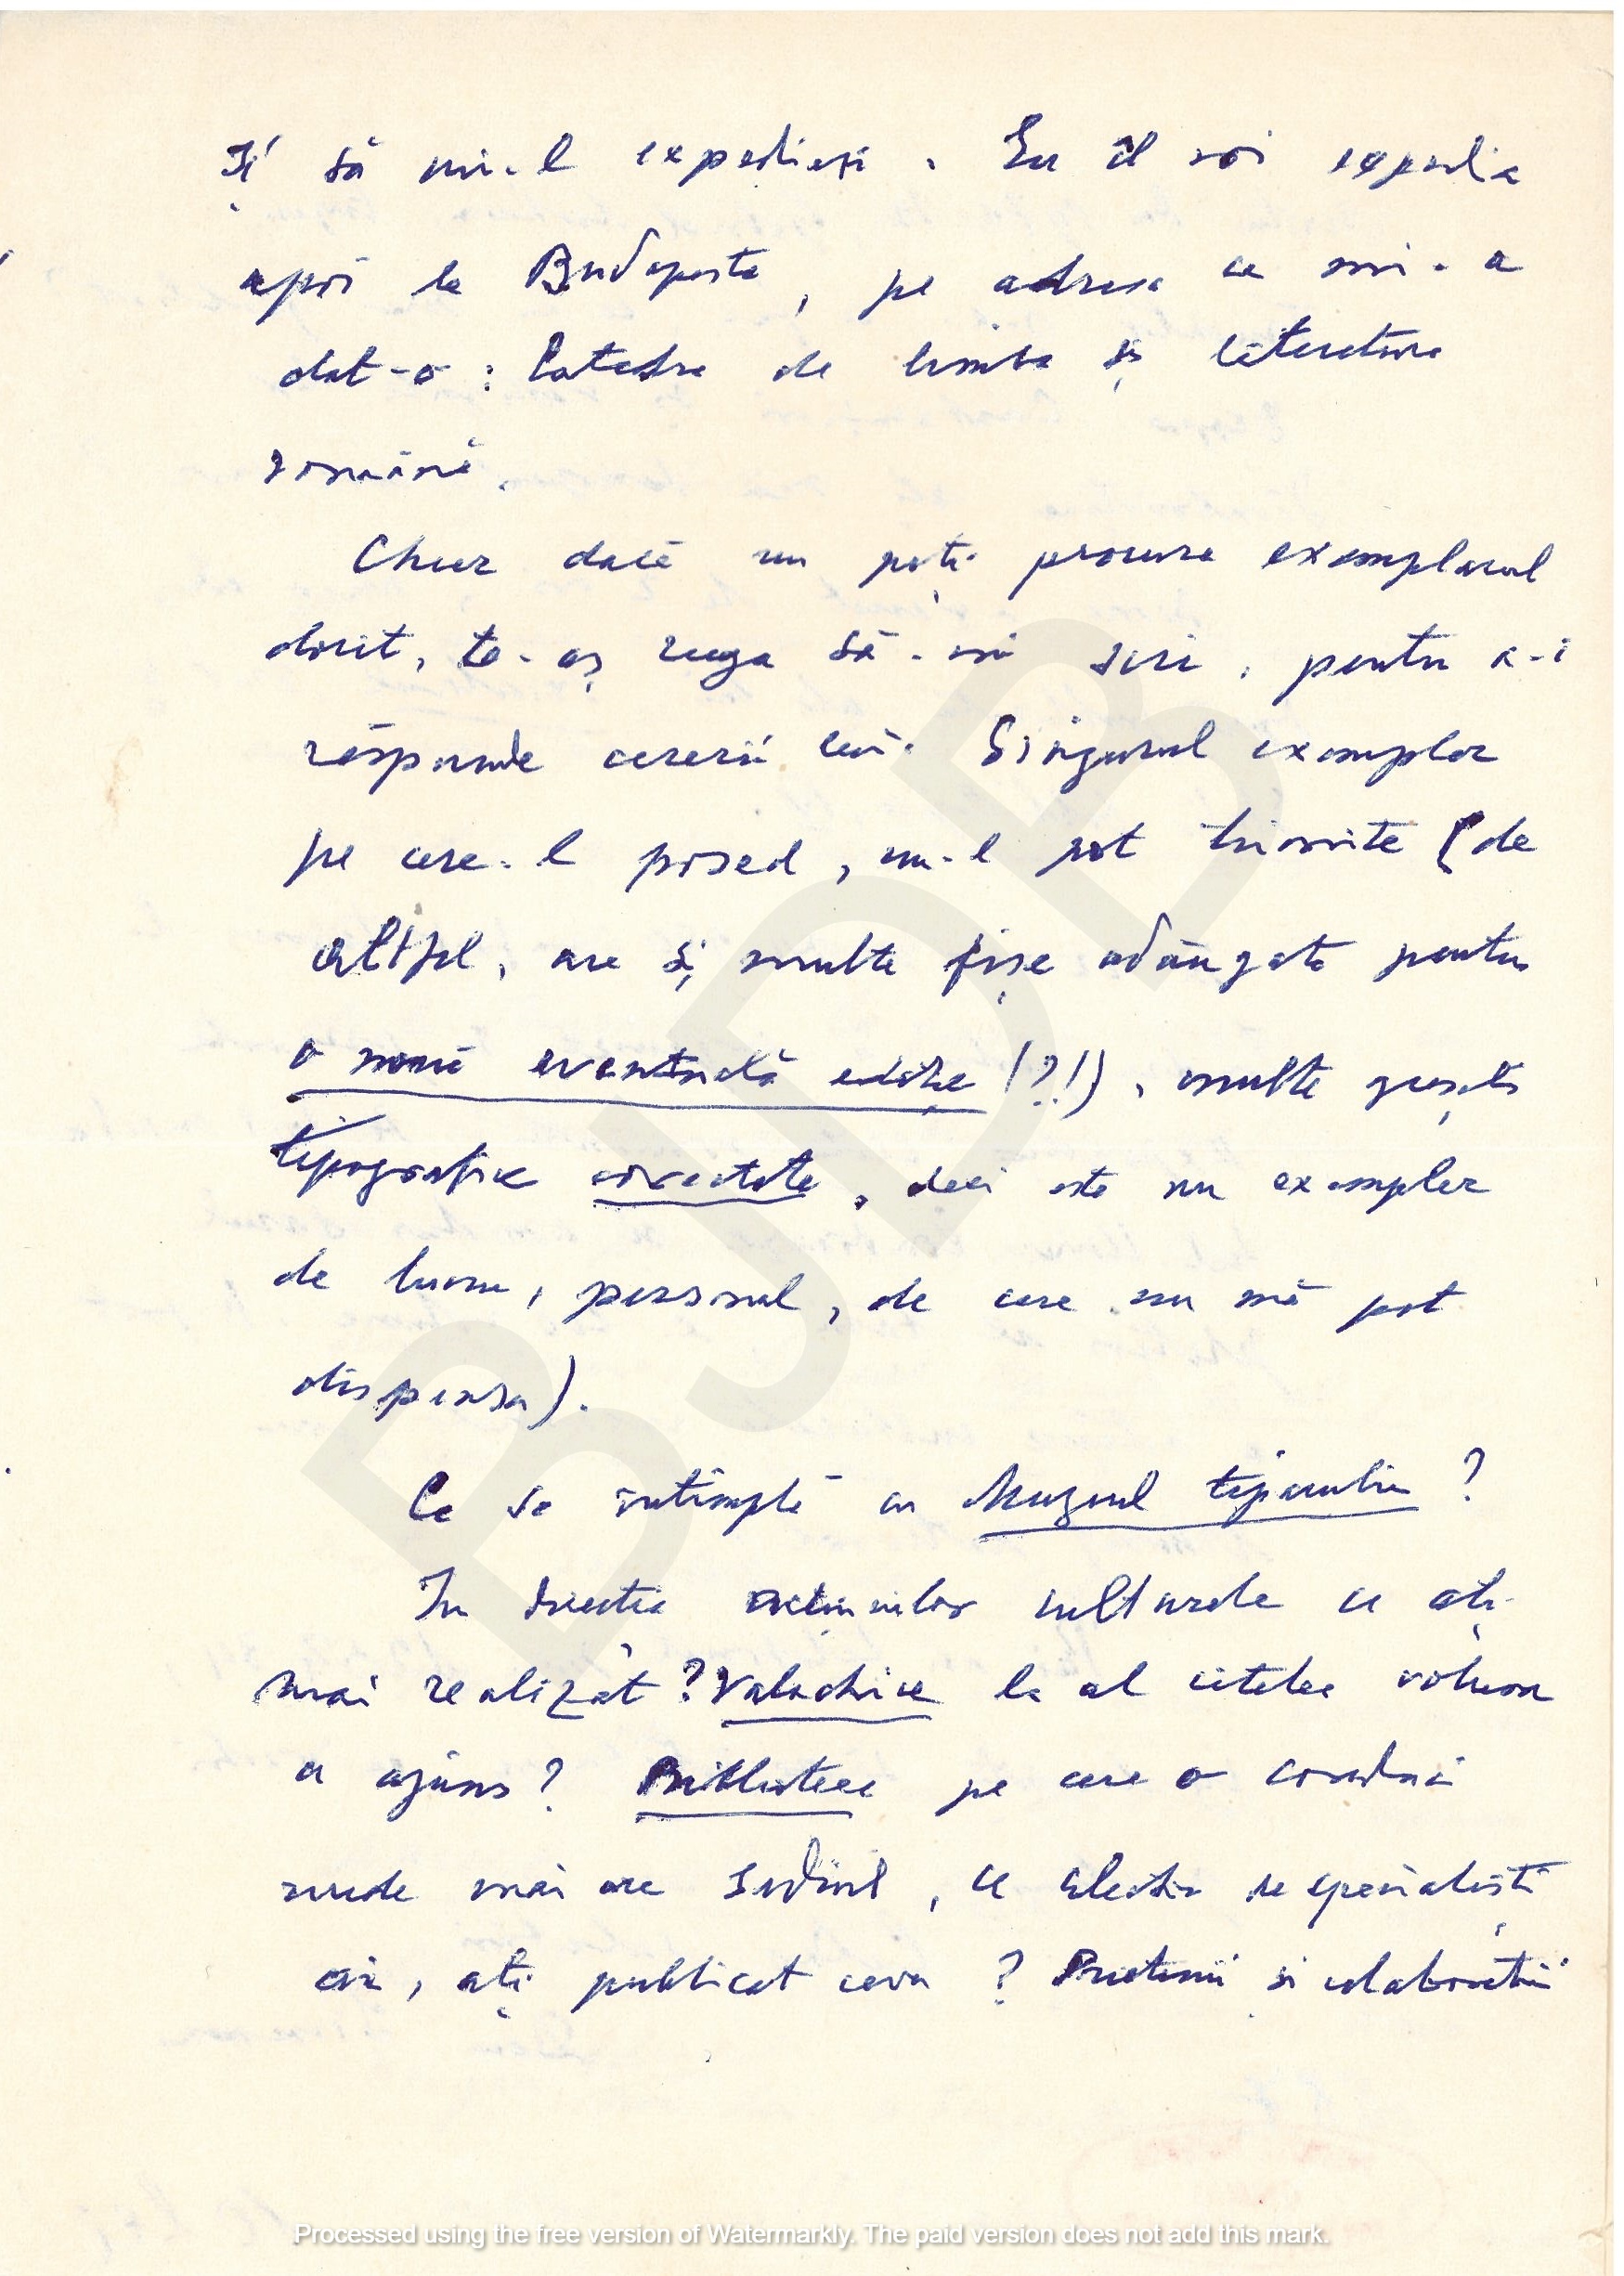 și să mi-l expediezi. Eu îl voi expedia
apoi la Budapesta, pe adresa ce mi-a
dat-o: Catedra de limba și literatura
română.
Chiar dacă nu poți procura exemplarul
dorit, te-aș ruga să-mi scrii, pentru a-i
răspunde cererii lui. Singurul exemplar
pe care-l posed, nu-l pot trimite (de
altfel, are și multe fișe adăugate pentru
o nouă eventuală ediție (?!), multe greșeli
tipografice corectate, deci este un exemplar
de lucru, personal, de care nu mă pot
dispensa).
Ce se întîmplă cu Muzeul tiparului?
În direcția acțiunilor culturale ce ați
mai realizat? Valachica la al cîtelea volum
a ajuns? Biblioteca pe care o conduci
unde mai are sediul, ce
ai, ați publicat ceva? Prietenii și colaboratorii
BJDB
Processed using the free version of Watermarkly. The paid version does not add this mark.